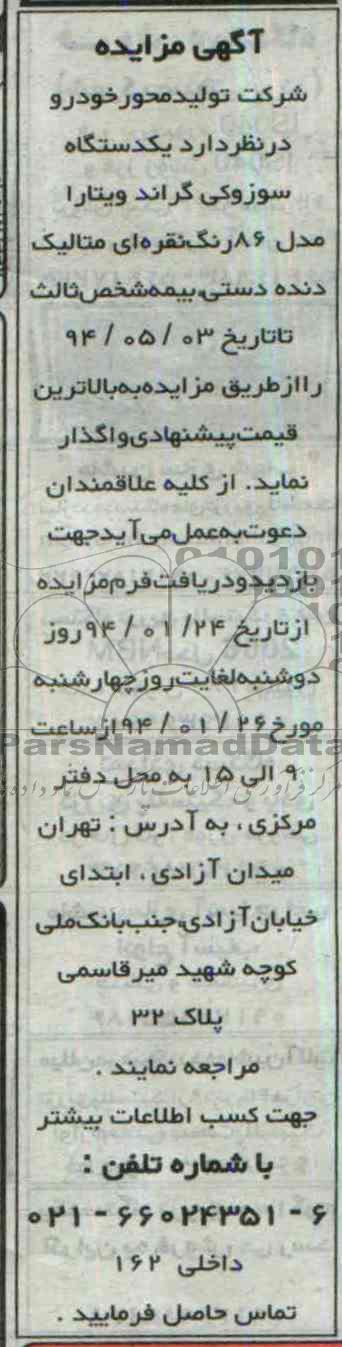 آگهی مزایده
شرکت تولیدمحورخودرو
درنظردارد یکدستگاه
سوزوکی گراند ویتارا
مدل ۸۶رنگ‌نقره‌ای متالیک
دنده دستی،بیمه‌شخص‌ثالث
تاتاریخ ۰۳ / ۰۵ / ۹۴
راازطریق مزایده‌به‌بالاترین
قیمت‌پیشنهادی‌واگذار
نماید. از کلیه علاقمندان
دعوت‌به‌عمل‌می‌آیدجهت
بازدیدودریافت‌فرم‌مزایده
ازتاریخ ۲۴/ ۰۱ / ۹۴روز
دوشنبه‌لغایت‌روزچهارشنبه
مورخ۲۶ / ۰۱ / ۹۴ازساعت
ParsNamadData
۹ الی ۱۵ به محل دفتر
مرکزی ، به آدرس : تهران
میدان آزادی ، ابتدای
خیابان‌آزادی‌،جنب‌بانک‌ملی
کوچه شهید میرقاسمی
پلاک ۳۲
مراجعه نمایند .
جهت کسب اطلاعات بیشتر
با شماره تلفن :
۰۲۱ - ۶۶۰۲۴۳۵۱ - ۶
داخلی ۱۶۲
تماس حاصل فرمایید .